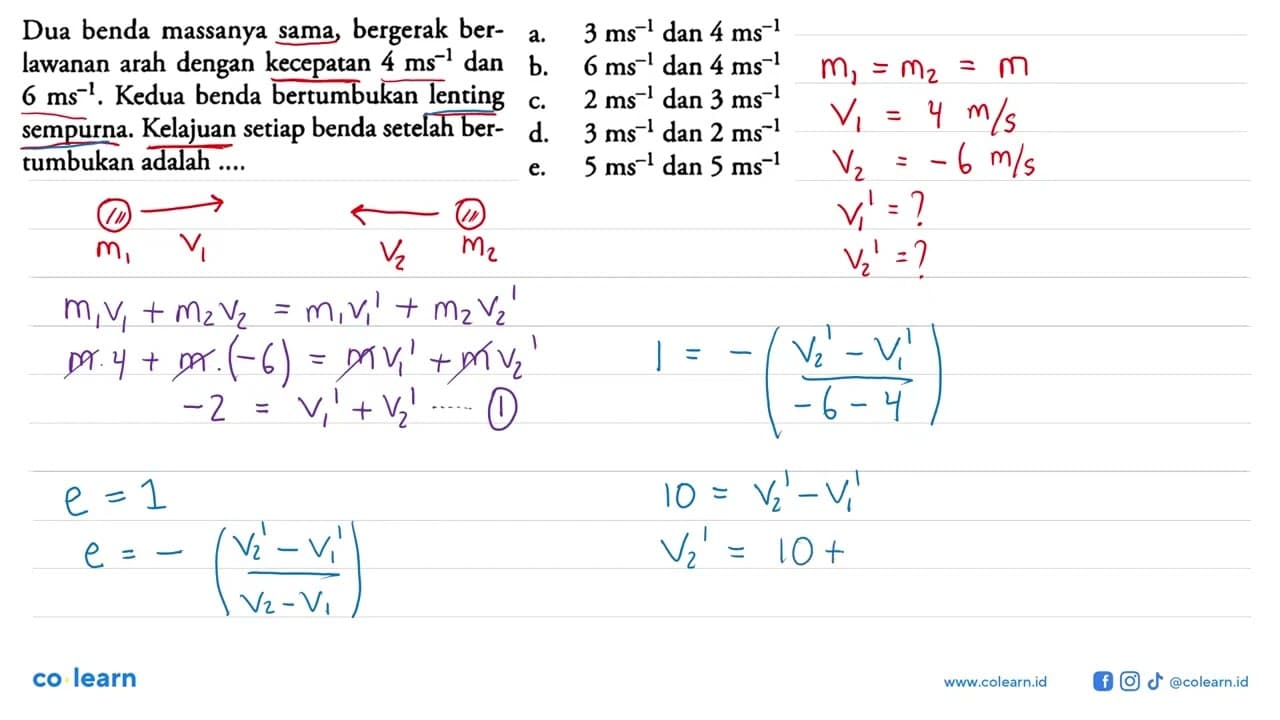 Dua benda massanya sama, bergerak ber-
lawanan arah dengan kecepatan 4 ms⁻¹ dan
6 ms⁻¹. Kedua benda bertumbukan lenting
sempurna. Kelajuan setiap benda setelah ber-
tumbukan adalah ....
a. 3 ms⁻¹ dan 4 ms⁻¹
b. 6 ms⁻¹ dan 4 ms⁻¹
c. 2 ms⁻¹ dan 3 ms⁻¹
d. 3 ms⁻¹ dan 2 ms⁻¹
e. 5 ms⁻¹ dan 5 ms⁻¹
m₁ = m₂ = m
V₁ = 4 m/s
V₂ = -6 m/s
V₁' = ?
V₂' = ?
m₁ V₁ V₂ m₂
m₁V₁ + m₂V₂ = m₁V₁' + m₂V₂'
m.4 + m.(-6) = mV₁' + mV₂'
-2 = V₁' + V₂' ..... ①
e = 1
e = - (V₂' - V₁' / V₂ - V₁)
1 = - (V₂' - V₁' / -6 - 4)
10 = V₂' - V₁'
V₂' = 10 +
co learn
www.colearn.id
@colearn.id